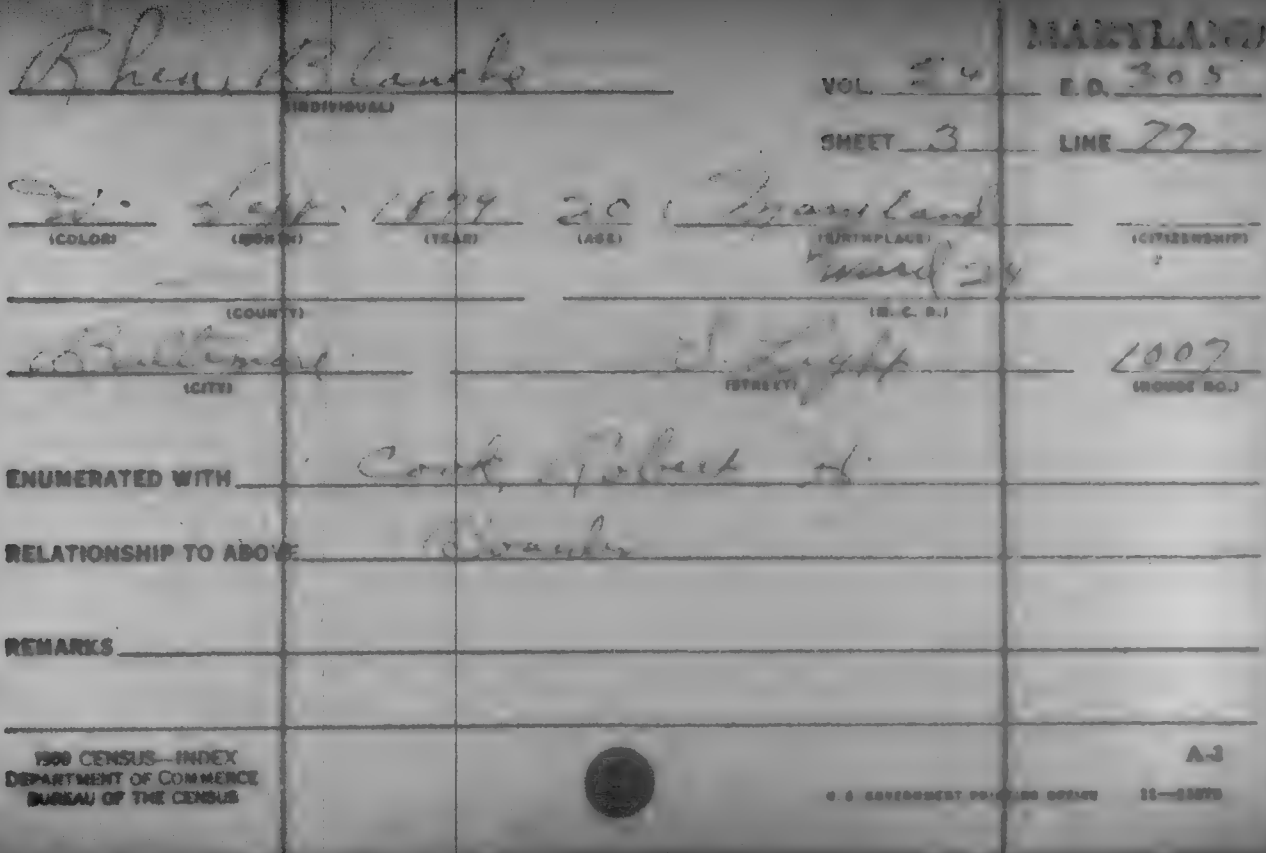 MARYLAND
Rhea, Blanche
(INDIVIDUAL)
VOL. 24 E. D. 305
SHEET 3 LINE 77
W. Sept. 1879 20 Maryland
(COLOR) (MONTH) (YEAR) (AGE) (BIRTHPLACE) (CITIZENSHIP)
Ward 24
(COUNTY) (M. C. D.)
Baltimore Light 1007
(CITY) (STREET) (HOUSE NO.)
ENUMERATED WITH Cook, Robert
RELATIONSHIP TO ABOVE Boarder
REMARKS
1900 CENSUS—INDEX
DEPARTMENT OF COMMERCE
BUREAU OF THE CENSUS
A-3
U. S. GOVERNMENT PRINTING OFFICE